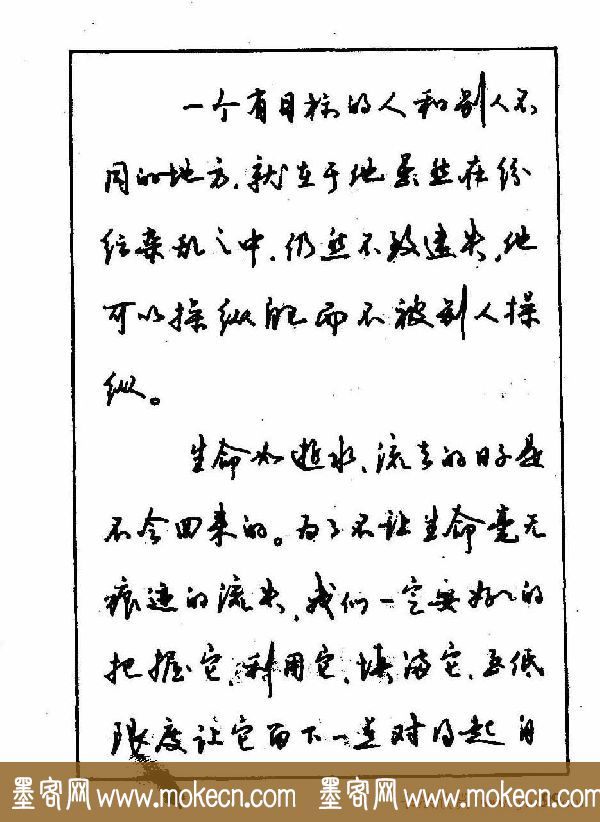 一个有目标的人和别人不
同的地方，就在于他虽然在纷
纭杂乱之中，仍然不致迷失，他
可以操纵自己而不被别人操
纵。
生命如逝水，流去的日子是
不会回来的。为了不让生命毫无
痕迹的流失，我们一定要好好的
把握它，利用它，填满它，至低
限度让它留下一点对得起自
墨客网 www.mokecn.com 墨客网 www.mokecn.com